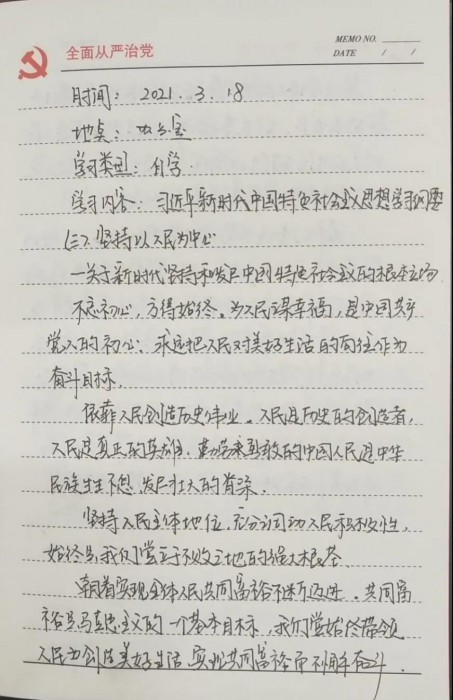 全面从严治党
MEMO NO.
DATE / /
时间：2021.3.18
地点：办公室
学习类型：自学
学习内容：习近平新时代中国特色社会主义思想学习纲要
(三)、坚持以人民为中心
—关于新时代坚持和发展中国特色社会主义的根本立场
不忘初心，方得始终。为人民谋幸福，是中国共产
党人的初心。永远把人民对美好生活的向往作为
奋斗目标.
依靠人民创造历史伟业。人民是历史的创造者，
人民是真正的英雄。勤劳勇敢的中国人民是中华
民族生生不息、发展壮大的
坚持人民主体地位，充分调动人民积极性，
始终是我们党立于不败之地的强大根基
朝着实现全体人民共同富裕不断迈进。共同富
裕是马克思主义的一个基本目标，我们党始终带领
人民为创造美好生活、实现共同富裕而不懈奋斗.